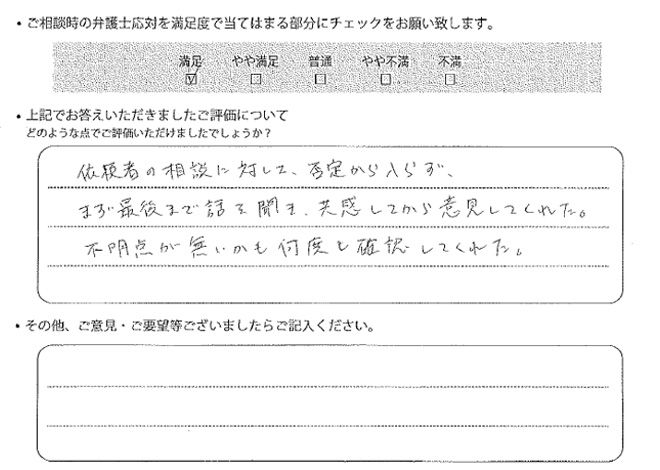 ・ご相談時の弁護士応対を満足度で当てはまる部分にチェックをお願い致します。
満足 やや満足 普通 やや不満 不満
・上記でお答えいただきましたご評価について
どのような点でご評価いただけましたでしょうか?
依頼者の相談に対して、否定から入らず、
まず最後まで話を聞き、共感してから意見してくれた。
不明点が無いかも何度も確認してくれた。
・その他、ご意見・ご要望等ございましたらご記入ください。